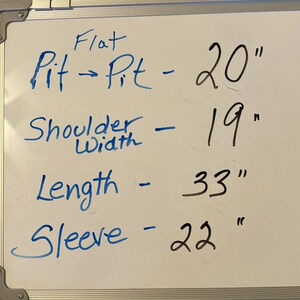 Flat
Pit → Pit - 20"
Shoulder
Width - 19"
Length - 33"
Sleeve - 22"